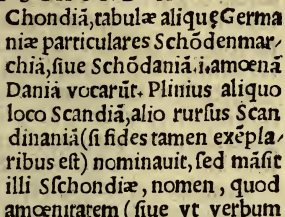 Chondiã,tabulæ aliquęGerma
niæ particulares Schõdenmar⸗
chiã,siue Schõdaniã.i.amœnã
Daniã vocarũt. Plinius aliquo
loco Scandiã,alio rursus Scan
dinauiã(si fides tamen exẽpla⸗
ribus est) nominauit, sed mãsit
illi Sschondiæ, nomen, quod
amœnitatem (siue vt verbum